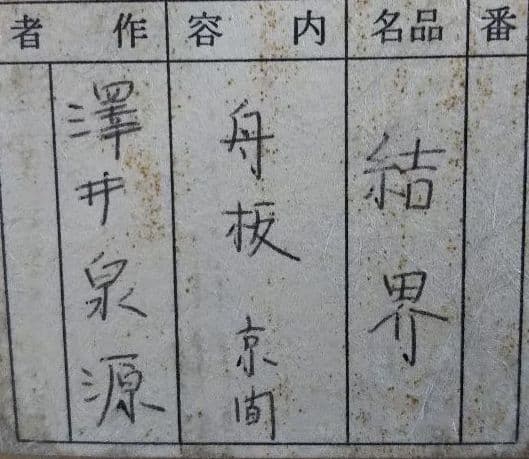 番
品名
結界
内容
舟板 京間
作者
澤井泉源